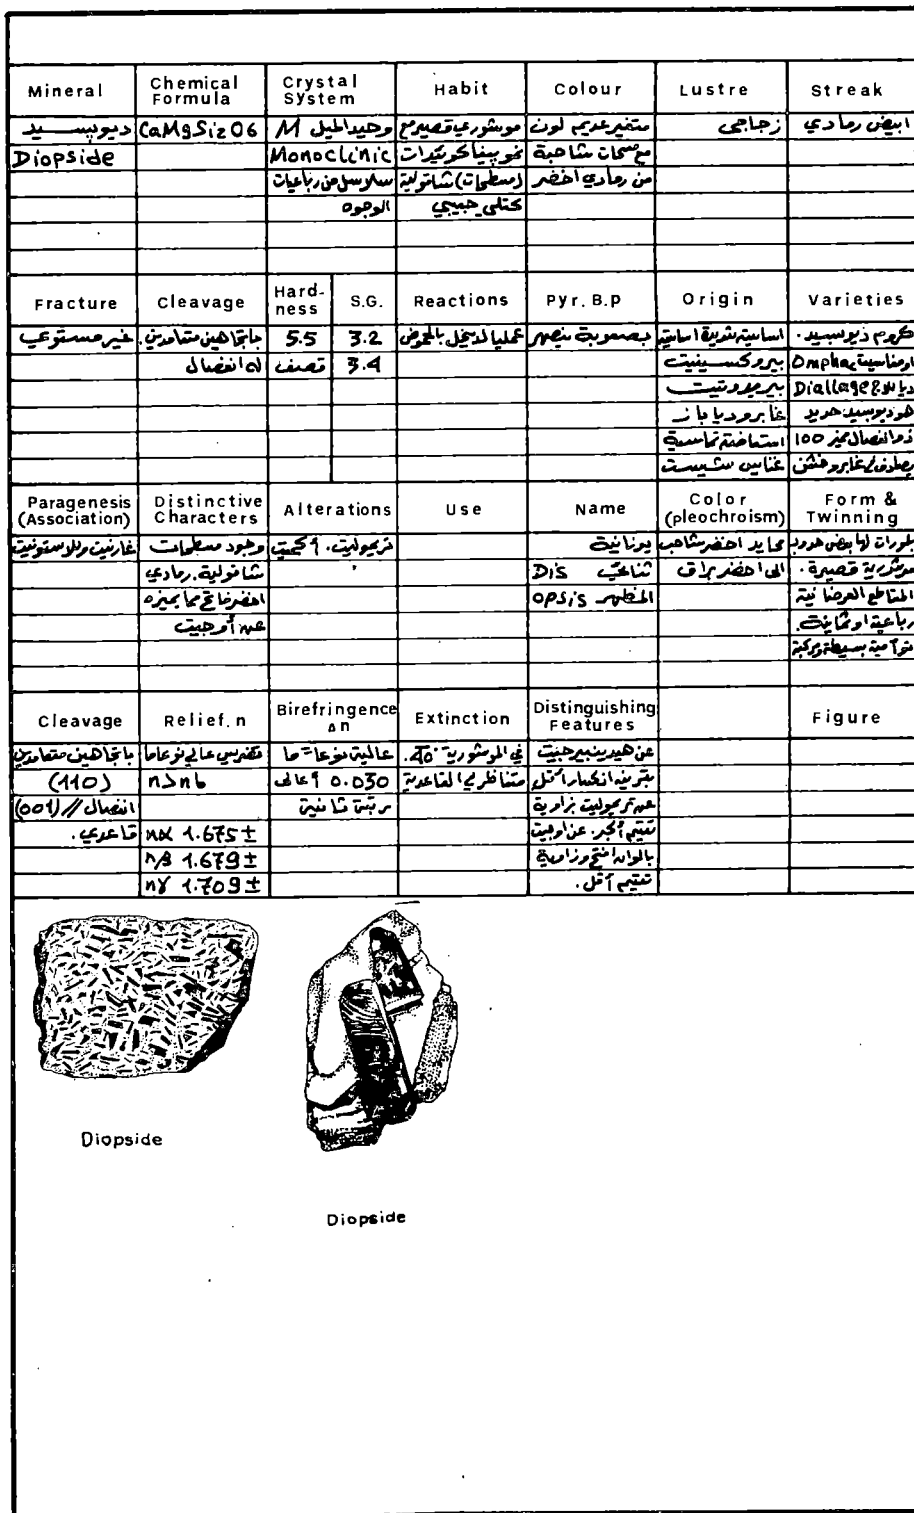 Mineral | Chemical Formula | Crystal System | Habit | Colour | Lustre | Streak
ديوبسيد | CaMgSi2O6 | وحيد الميل M | موشوري قصير مع | متغير عديم لون | زجاجي | ابيض رمادي
Diopside | Monoclinic | نمو بيناكوئيدات | مع صحات شاحبة
سلاسل من رباعيات | (مسطحات) شاقولية | من رمادي اخضر
الوجوه | كتلي حبيبي
Fracture | Cleavage | Hard-ness | S.G. | Reactions | Pyr. B.p | Origin | Varieties
غير مستوي | باتجاهين متعامدين. | 5.5 | 3.2 | عمليا لا ينحل بالحموض | بصعوبة ينصهر | اساسية شديدة اساسية | كروم ديوبسيد.
له انفصال | قصف | 3.4 | بيروكسينيت | اومفاسيت Ompha
بيريدوتيت | ديالاج Diallage
غابرو ديا باز | هو ديوبسيد حديد
استحاضة تماسية | ذو انفصال مميز 100
غنايس شيست | يصادف في غابرو خشن
Paragenesis (Association) | Distinctive Characters | Alterations | Use | Name | Color (pleochroism) | Form & Twinning
غارنيت وللاستونيت | وجود مسطحات | تريموليت. أكتيت | يونانية | محايد اخضر شاحب | بلورات لها بعض حدود
شاقولية. رمادي | ثنائي Dis | الى اخضر براق | موشورية قصيرة.
اخضر فاتح مما يميزه | المظهر opsis | المقاطع العرضانية
عن أوجيت | رباعية او ثمانية.
توأمية بسيطة ومركبة
Cleavage | Relief. n | Birefringence Δn | Extinction | Distinguishing Features | Figure
باتجاهين متعامدين | تضريس عالي نوعاما | عالية نوعا ما | في الموشورية 40°. | عن هيدينبيرجيت
(110) | n>nb | 0.030 أعالى | متناظر في القاعدية | بقرينة انكسار أقل
انفصال // (001) | رتبة ثانية | عن تريموليت بزاوية
قاعدي. | nα 1.675± | تعتيم أكبر. عن اوجيت
nβ 1.679± | بالوان افتح وزاوية
nγ 1.709± | تعتيم أقل.
Diopside
Diopside